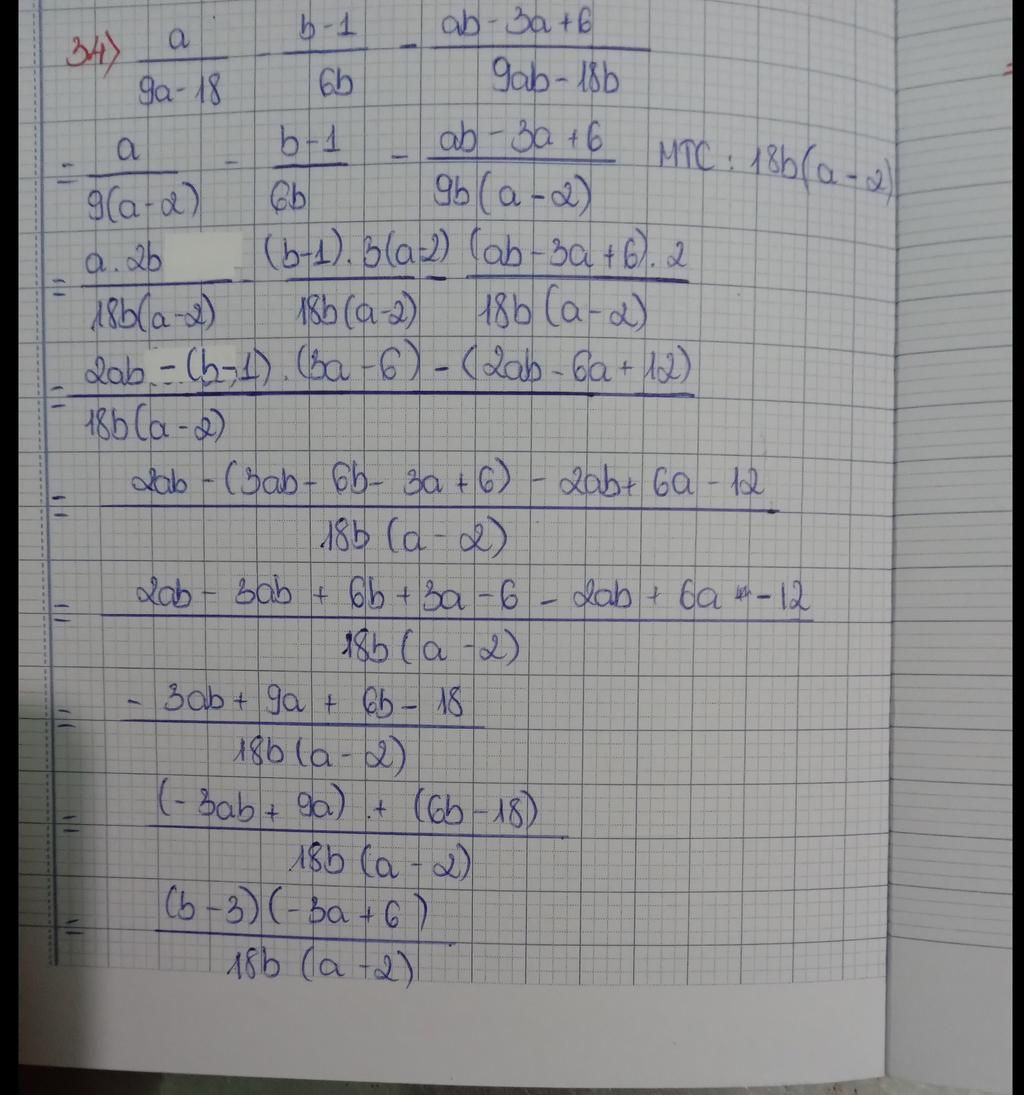 34) a/(9a-18) - (b-1)/(6b) - (ab-3a+6)/(9ab-18b)
= a/(9(a-2)) - (b-1)/(6b) - (ab-3a+6)/(9b(a-2)) MTC: 18b(a-2)
= (a.2b)/(18b(a-2)) - ((b-1).3(a-2))/(18b(a-2)) - ((ab-3a+6).2)/(18b(a-2))
= (2ab-(b-1).(3a-6)-(2ab-6a+12))/(18b(a-2))
= (2ab-(3ab-6b-3a+6)-2ab+6a-12)/(18b(a-2))
= (2ab-3ab+6b+3a-6-2ab+6a-12)/(18b(a-2))
= (-3ab+9a+6b-18)/(18b(a-2))
= ((-3ab+9a)+(6b-18))/(18b(a-2))
= ((b-3)(-3a+6))/(18b(a-2))